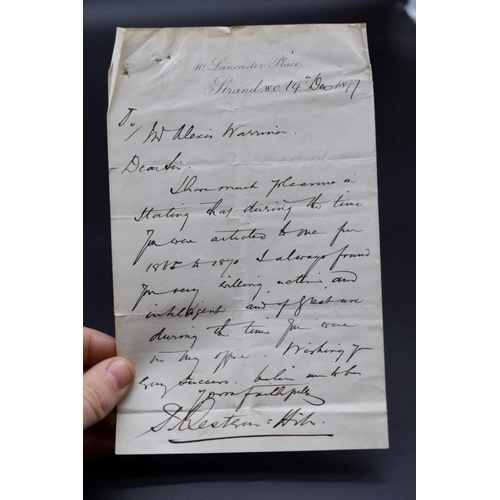 10, Lancaster Place,
Strand, W.C. 19th Dec 1877
To/ Mr Alexis Warrinor
Dear Sir,
I have much pleasure in
stating that during the time
you were articled to me from
1865 to 1870 I always found
you very willing, active, and
intelligent and of great use
during the time you were
in my office. Wishing you
every success. believe me to be
Yours faithfully